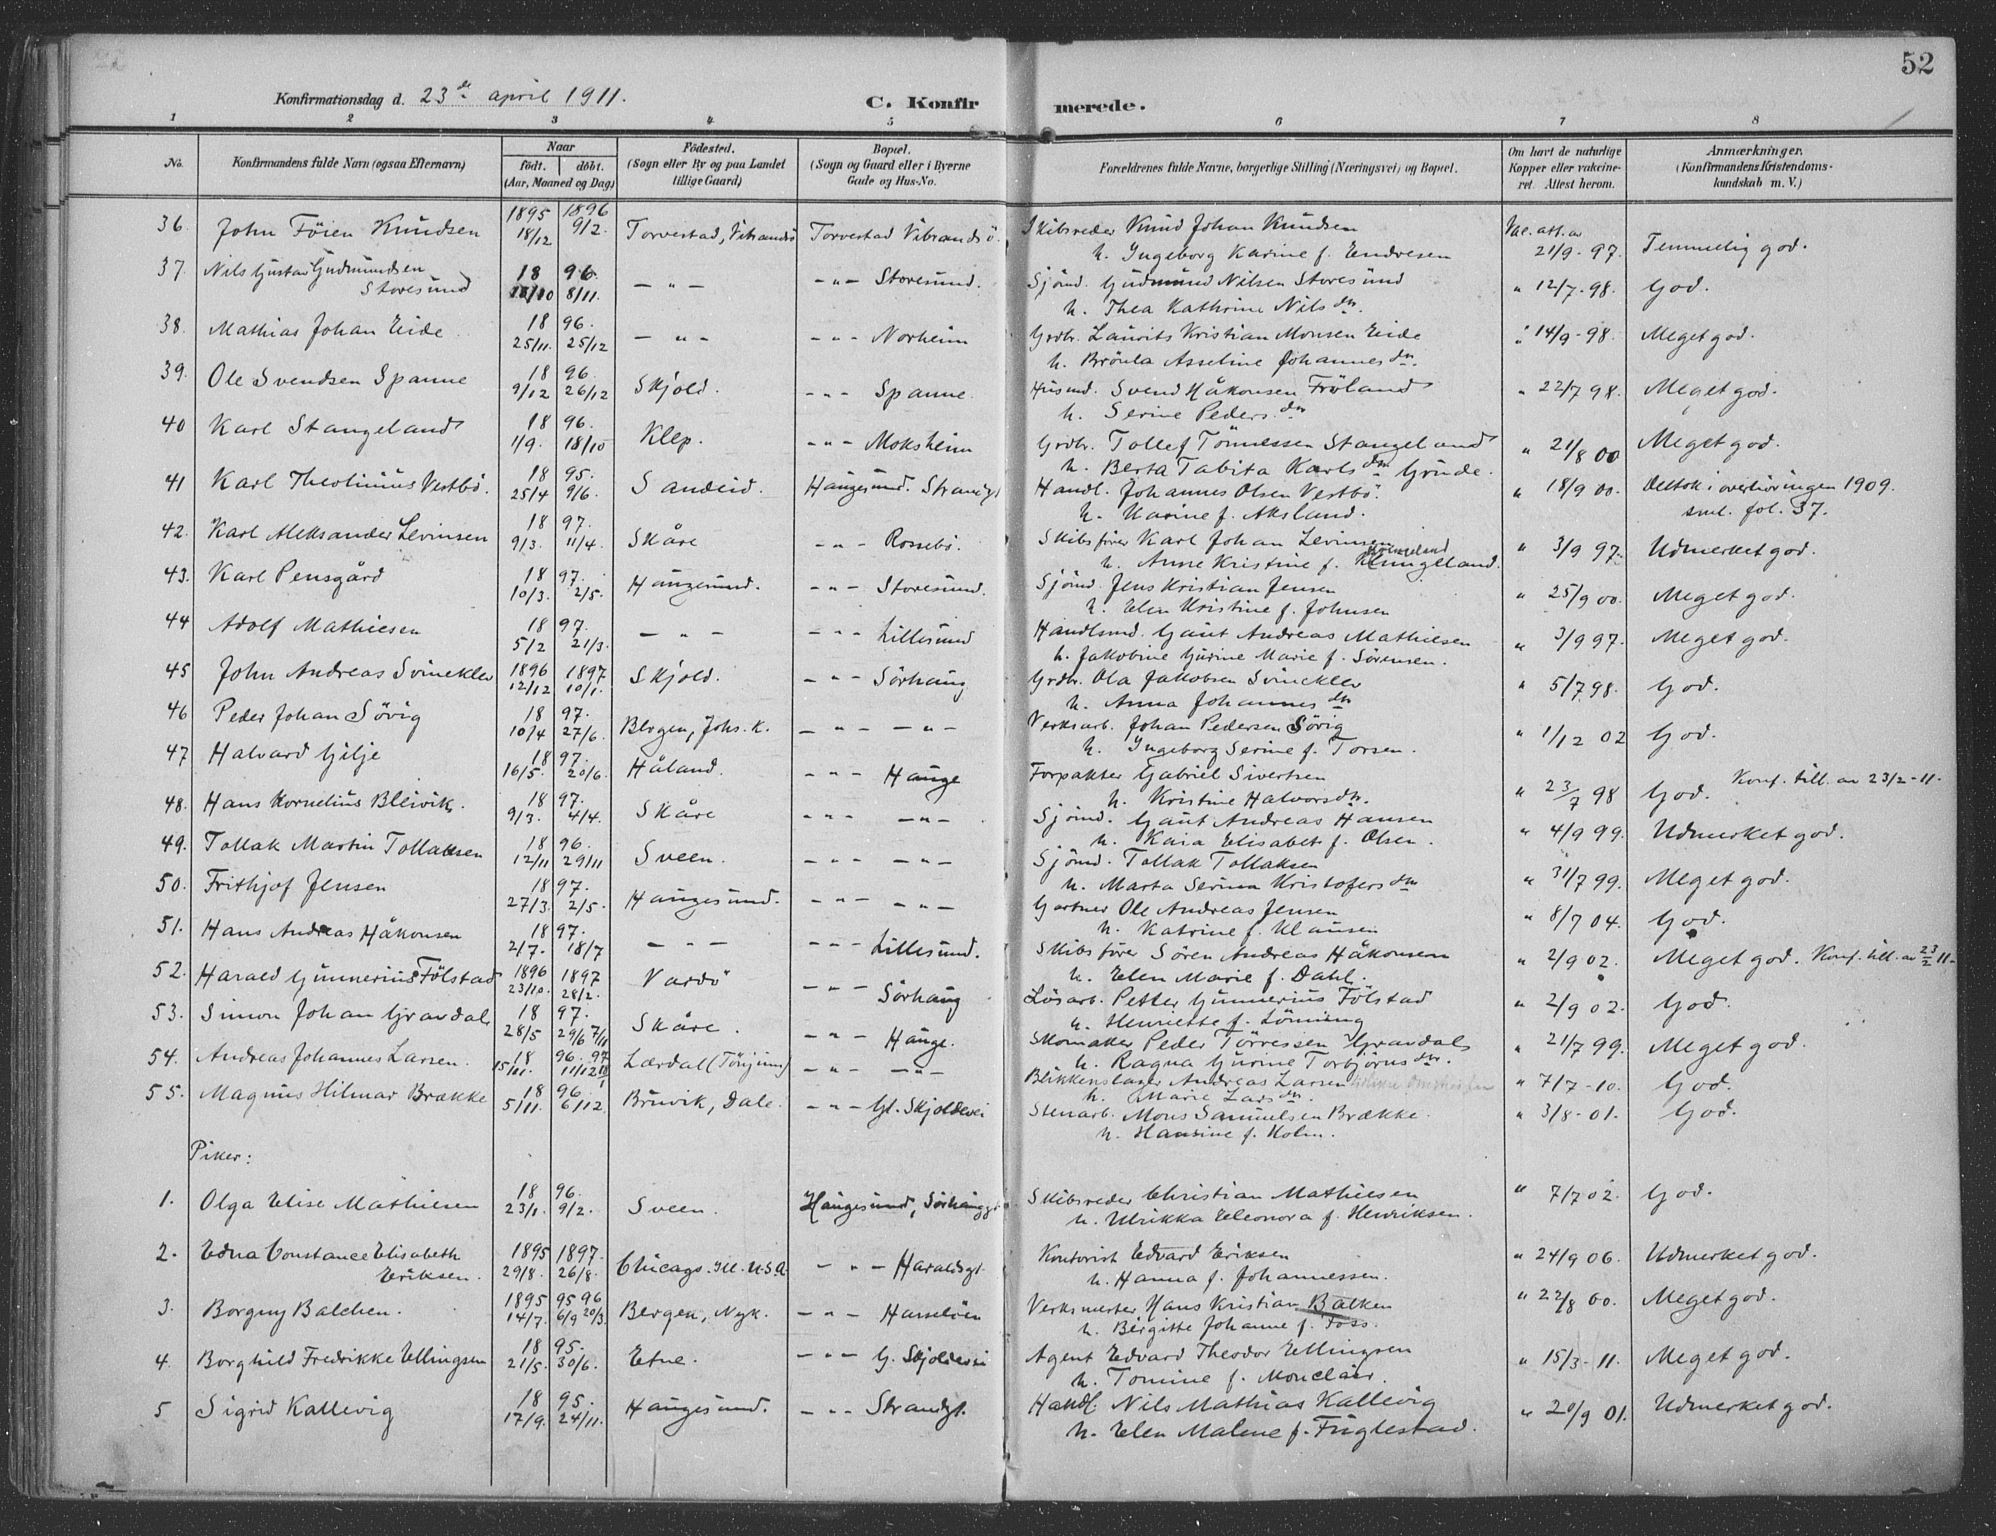 52
Konfirmationsdag d. 23de april 1911.
C. Konfirmerede.
1 2 3 4 5 6 7 8
No. Konfirmandens fulde Navn (ogsaa Efternavn) Naar født. døbt. (Aar, Maaned og Dag) Fødested. (Sogn eller By og paa Landet tillige Gaard) Bopæl. (Sogn og Gaard eller i Byerne Gade og Hus-No. Forældrenes fulde Navne, borgerlige Stilling (Næringsvei) og Bopæl. Om havt de naturlige Kopper eller vaccineret. Attest herom. Anmærkninger. (Konfirmandens Kristendomskundskab m. V.)
36 John Föien Knudsen 1895 18/12 1896 9/2. Torvestad, Vibrandsö Torvestad Vibrandsö. Skibsreder Knud Johan Knudsen Vac. att. av 21/9-97. Temmelig god.
h. Ingeborg Karine f. Endresen
37. Nils Gustav Gudmundsen Storesund 18 96. 8/11. — " — - " - Storesund. Sjömd. Gudmund Nilsen Storesund " 12/7-98. God.
h. Thea Kathrine Nilsdn.
38. Mathias Johan Eide. 18 96. 25/11. 25/12 — " — - " - Norheim Grdbr. Laurits Kristian Monsen Eide " 14/9-98. Meget god.
h. Asseline Johannesdn.
39. Ole Svendsen Spanne 18 96. 9/12 26/12 Skjold. - " - Spanne. Husmd. Svend Håkonsen Fröland " 22/7 98. Meget god.
h. Serine Pedersdn
40 Karl Stangeland 18 96. 1/9. 18/10 Klep. - " - Moksheim Grdbr. Tollef Tönnessen Stangeland " 21/8 00 Meget god.
h. Berta Tabita Karlsdn Grinde.
41 Karl Theolinius Vestbö. 18 95. 25/4 9/6. Sandeid. Haugesund. Strandgt Handl. Johannes Olsen Vestbö. " 18/9 00. Deltok i overhöringen 1909.
h. Karine f. Aksland. sml. fol. 37.
42. Karl Aleksander Levinsen 18 97. 9/3. 11/4. Skåre - " - Rossebö. Skibsförer Karl Johan Levinsen " 3/9 97. Udmerket god.
h. Anne Kristine f.
43. Karl Pensgård 18 97. 10/3. 2/5. Haugesund. - " - Storesund. Sjömd. Jens Kristian Jensen " 25/9 00. Meget god.
h. Elen Kristine f. Johnsen
44 Adolf Mathiesen 18 97. 5/2 21/3. — " — - " - Lillesund Handlsmd. Gaut Andreas Mathiesen " 3/9 97. Meget god.
h. Jakobine Gurine Marie f. Sörensen.
45 John Andreas Svinekler 1896 12/12 1897 10/1. Skjold. - " - Sörhaug Grdbr. Ola Jakobsen Svinekler " 5/7 98. God.
h. Anna Johannesdn
46 Peder Johan Sövig 18 97. 10/4 27/6. Bergen, Johs. K. — " — " — Verksarb. Johan Pedersen Sövig " 1/12 02 God.
h. Ingeborg Serine f. Torsen.
47 Halvard Gilje 18 97. 16/5. 20/6. Håland. - " - Hauge Forpakter Gabriel Sivertsen " 23/7 98 God. Konf. till. av 23/2-11.
h. Kristine Halvorsdn.
48. Hans Kornelius Bleivik. 18 97. 9/3. 4/4. Skåre - " - — " — Sjömd. Gaut Andreas Hansen " 4/9 99. Udmerket god.
h. Kaia Elisabet f. Olsen.
49. Tollak Martin Tollaksen 18 96. 12/11 29/11 Sveen. - " - — " — Sjömd. Tollak Tollaksen " 31/7 99. Meget god.
h. Marta Serina Kristofersdn
50. Frithjof Jensen 18 97. 27/3. 2/5. Haugesund. - " - — " — Gartner Ole Andreas Jensen " 8/7 04. God.
h. Katrine f. Klausen
51. Hans Andreas Håkonsen 18 97. 2/7. 18/7 — " — - " - Lillesund. Skibsförer Sören Andreas Håkonsen " 2/9 02. Meget god. Konf. till. av 23/2 11.
h. Elen Marie f. Dahl.
52. Harald Gunnerius Fölstad 1896 23/10. 1897 28/2. Vardö - " - Sörhaug Lösarb. Petter Gunnerius Fölstad " 2/9 02. God.
h. Henriette f. Lönning
53. Simon Johan Gravdal 18 97. 28/5 29/6 7/11 Skåre. - " - Hauge. Skomaker Peder Törressen Gravdal " 21/7 99. Meget god.
h. Ragna Gurine Torbjörnsdn.
54. Andreas Johannes Larsen. 18 96. 97 15/11. 11/12 Lærdal (Tönjum) - " - — " — Blikkenslager Andreas Larsen " 7/7-10. God.
h. Marie Larsdn.
55. Magnus Hilmar Brække 18 96. 5/11. 6/12. Bruvik, Dale. - " - Gl. Skjoldevei Stenarb. Mons Samuelsen Brække. " 3/8-01. God.
h. Hansine f. Holm.
Piker:
1. Olga Elise Mathiesen 18 96. 23/1. 9/2. Sveen. Haugesund, Sörhauggt. Skibsreder Christian Mathiesen " 7/7 02. God.
h. Ulrikka Eleonora f. Henriksen.
2. Edna Constance Elisabeth Eriksen. 1895 29/8. 1897. 26/8. Chicago. Ill. U.S.A. - " - Haraldsgt. Kontorist Edvard Eriksen " 24/9 06. Udmerket god.
h. Hanna f. Johannessen.
3. Borgny Balchen. 1895 14/7. 95 96 6/9 20/3 Bergen, Nyk. - " - Hasselöen Verksmester Hans Kristian Balken " 22/8 00. Meget god.
h. Birgitte Johanne f. Foss.
4. Borghild Fredrikke Ellingsen 18 95. 21/5. 30/6. Etne. - " - G. Skjoldevei Agent Edvard Theodor Ellingsen " 15/3-11. Meget god.
h. Tomine f. Monclair.
5 Sigrid Kallevig 18 95. 17/9. 24/11. Haugesund. - " - Strandgt. Handl. Nils Mathias Kallevig " 20/9 01. Udmerket god.
h. Elen Malene f. Fuglestad.